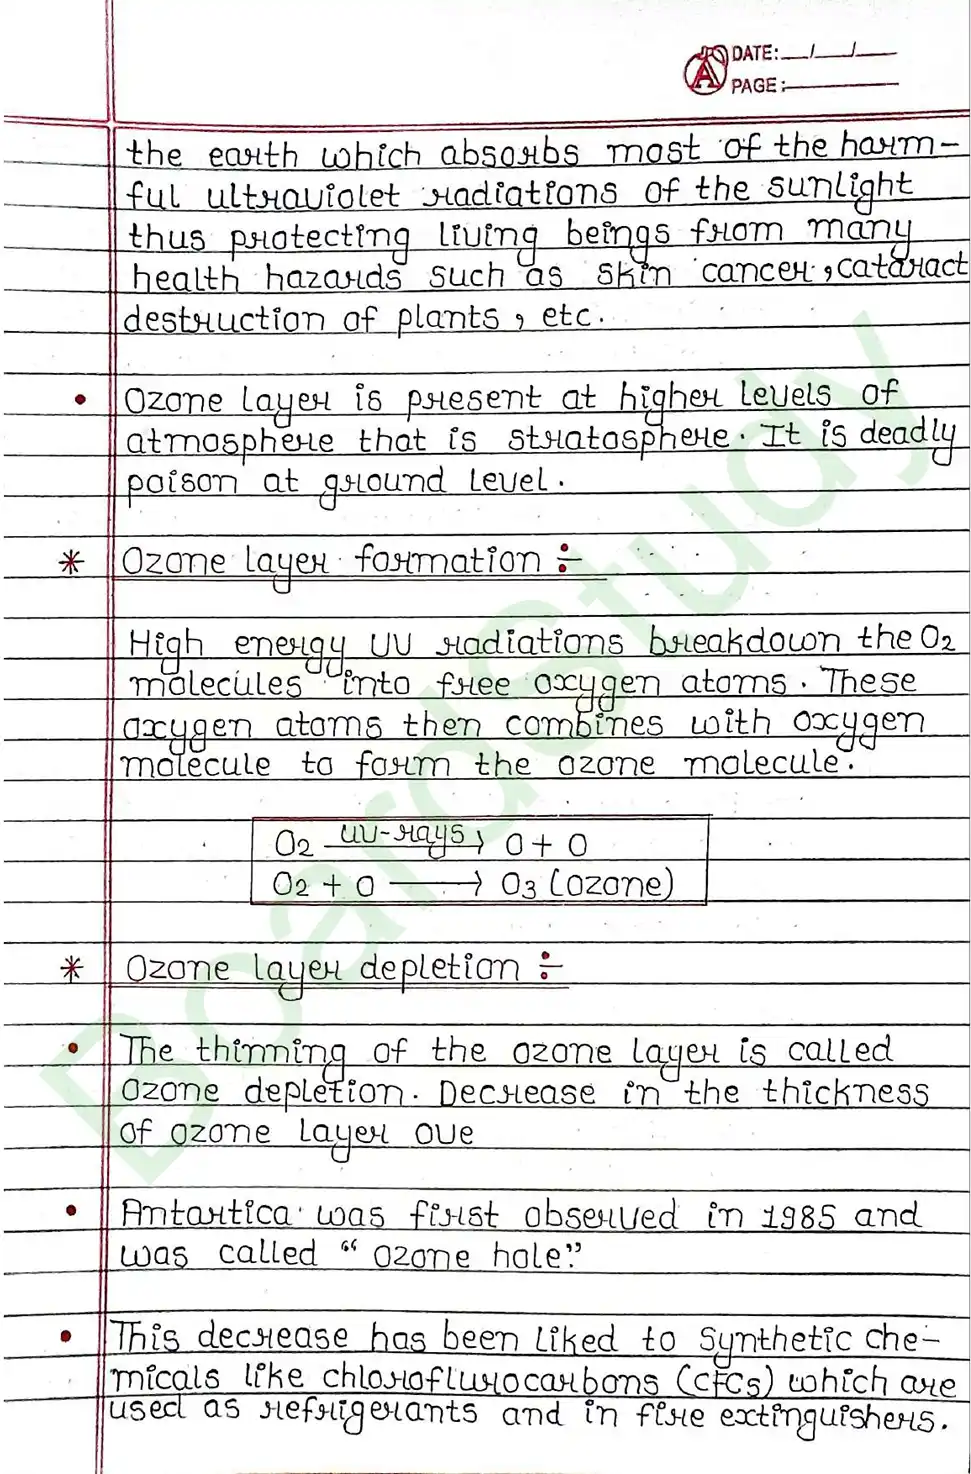 DATE: __/__/__
PAGE: ______
the earth which absorbs most of the harm-
ful ultraviolet radiations of the sunlight
thus protecting living beings from many
health hazards such as skin cancer, cataract
destruction of plants, etc.
• Ozone layer is present at higher levels of
atmosphere that is stratosphere. It is deadly
poison at ground level.
* Ozone layer formation :-
High energy UV radiations breakdown the O2
molecules into free oxygen atoms. These
oxygen atoms then combines with oxygen
molecule to form the ozone molecule.
O2 —UV-rays→ O + O
O2 + O ⟶ O3 (ozone)
* Ozone layer depletion :-
• The thinning of the ozone layer is called
ozone depletion. Decrease in the thickness
of ozone layer ove
• Antartica was first observed in 1985 and
was called “ ozone hole.”
• This decrease has been liked to synthetic che-
micals like chloroflurocarbons (CFCs) which are
used as refrigerants and in fire extinguishers.
BoardStudy